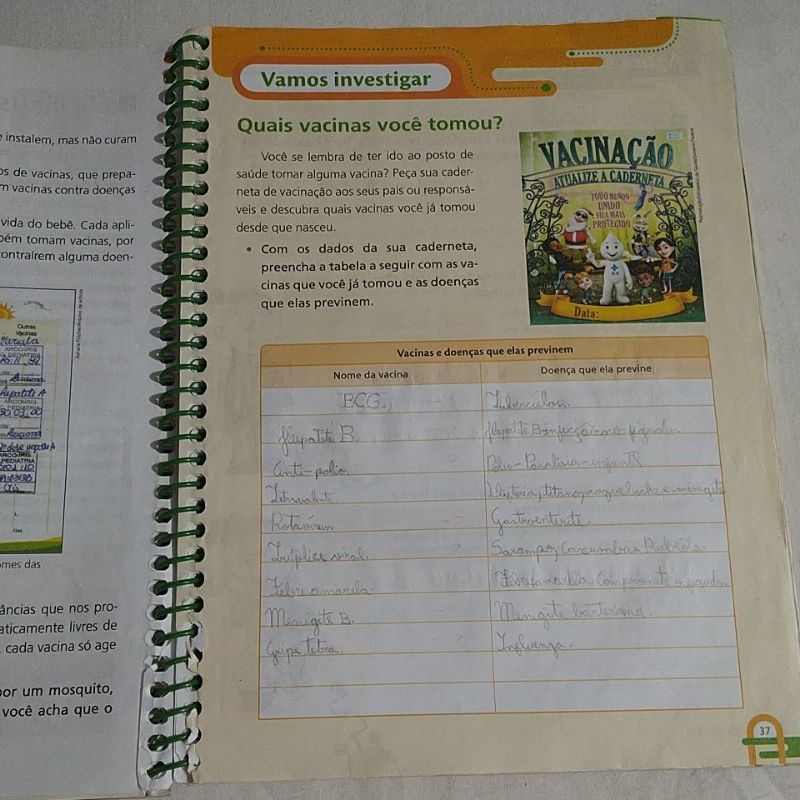 e instalem, mas não curam
os de vacinas, que prepa-
m vacinas contra doenças
vida do bebê. Cada apli-
bém tomam vacinas, por
contraírem alguma doen-
Outras
Vacinas
Hepatite A
omes das
âncias que nos pro-
aticamente livres de
cada vacina só age
por um mosquito,
você acha que o
Vamos investigar
Quais vacinas você tomou?
Você se lembra de ter ido ao posto de
saúde tomar alguma vacina? Peça sua cader-
neta de vacinação aos seus pais ou responsá-
veis e descubra quais vacinas você já tomou
desde que nasceu.
• Com os dados da sua caderneta,
preencha a tabela a seguir com as va-
cinas que você já tomou e as doenças
que elas previnem.
VACINAÇÃO
ATUALIZE A CADERNETA
TODO MUNDO
UNIDO
FICA MAIS
PROTEGIDO
Data:
Vacinas e doenças que elas previnem
Nome da vacina Doença que ela previne
BCG. Tuberculose.
Hepatite B. Hepatite B
Anti-polio. Polio-Paralisia-infantil
Tetravalente.
Rotavírus Gastroenterite
Tríplice viral. Sarampo, Caxumba Rubéola
Febre amarela. compromete o fígado
Menigite B. Menigite bacteriana.
Gripe Influenza.
37